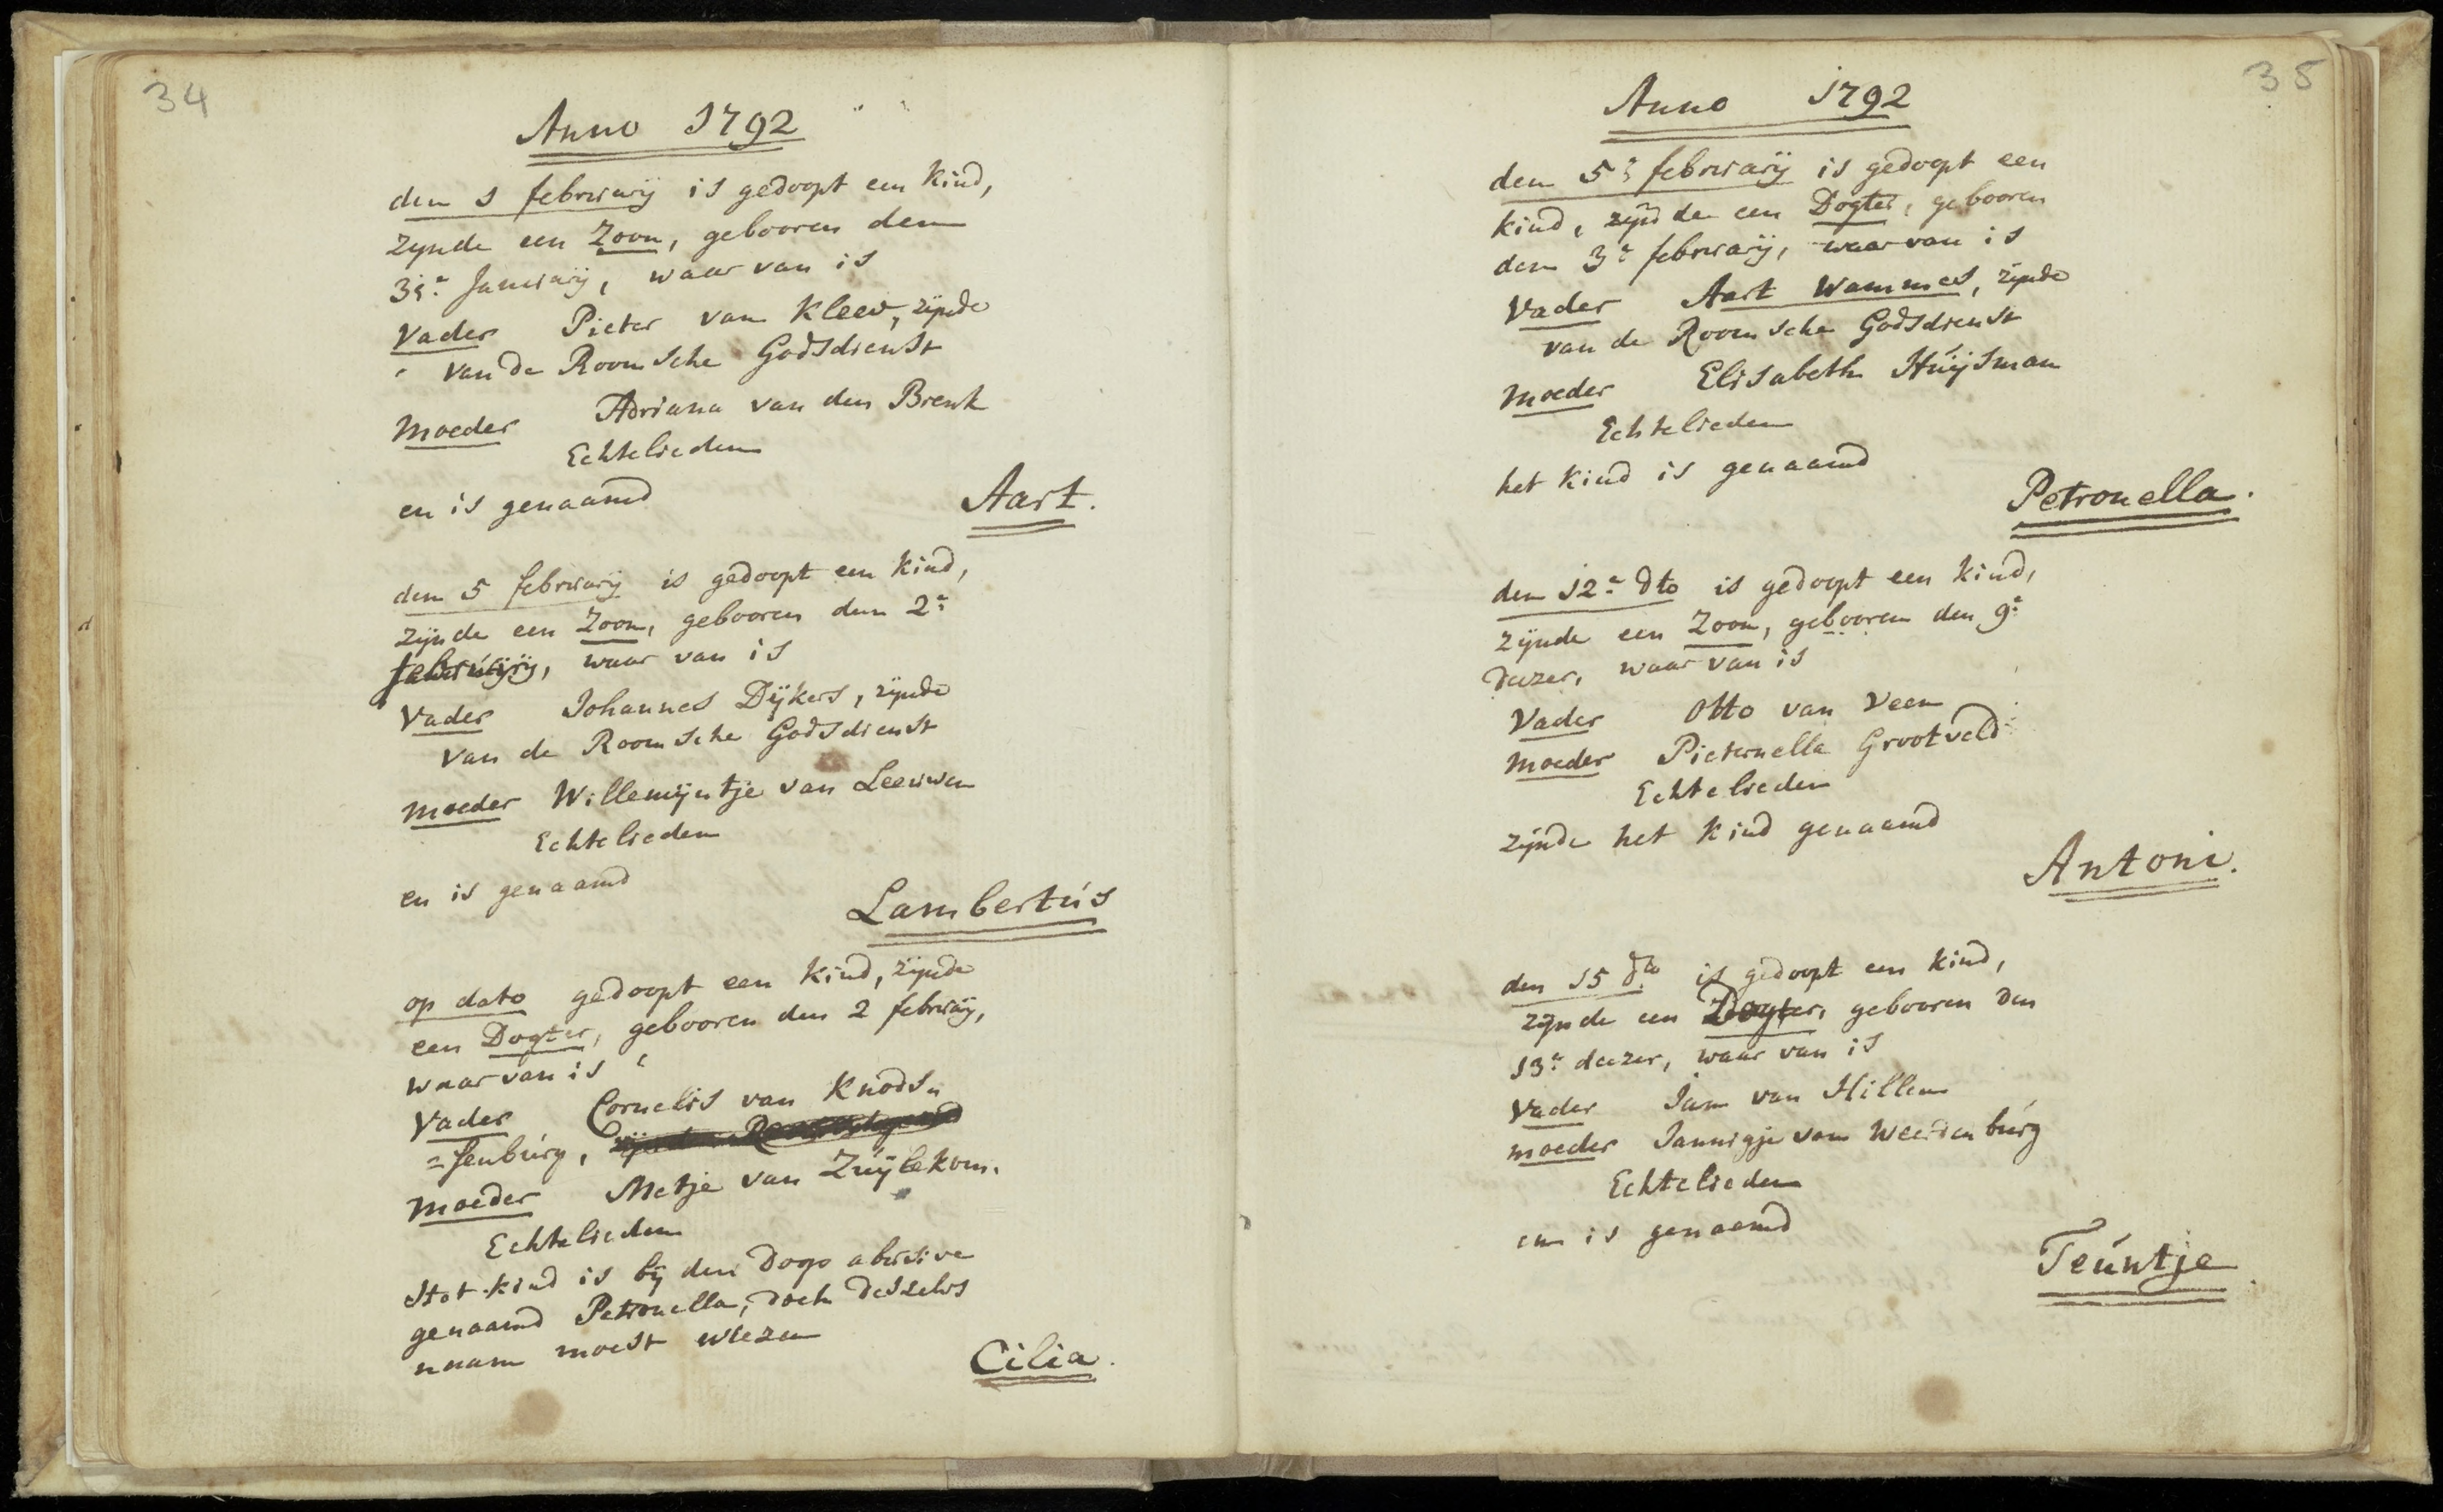 34
Anno 1792
den 1 februarij is gedoopt een kind,
zynde een Zoon, gebooren den
31e Januarij, waar van is
Vader Pieter van Kleev, zijnde
van de Roomsche Godsdienst
Moeder Adriana van den Brenk
Echtelieden
en is genaamd
Aart.
den 5 februarij is gedoopt een kind,
zijnde een Zoon, gebooren den 2e
februarij, waar van is
Vader Johannes Dijkers, zijnde
van de Roomsche Godsdienst
Moeder Willemijntje van Leeuwen
Echtelieden
en is genaamd
Lambertús
op dato gedoopt een kind, zijnde
een Dogter, gebooren den 2 febrúarij,
waar van is
Vader Cornelis van Knods„
=senbúrg,
Moeder Metje van Zúijlekom.
Echtelieden
Het kind is bij den Doop abusive
genaamd Petronella, doch deszelvs
naam moest weezen
Cilia.
35
Anno 1792
den 5e februarij is gedoopt een
kind, zijnde een Dogter, gebooren
den 3e februarij, waar van is
Vader Aart Wammes, zijnde
van de Roomsche Godsdienst
Moeder Elisabeth Húijsman
Echtelieden
het kind is genaamd
Petronella.
den 12e dto is gedoopt een kind,
zijnde een Zoon, gebooren den 9e
deezer, waar van is
Vader Otto van Veen
Moeder Pieternella Grootveld
Echtelieden
zijnde het kind genaamd
Antoni.
den 15 dto is gedoopt een kind,
zijnde een Dogter, gebooren den
13e deezer, waar van is
Vader Jan van Hillen
moeder Jannigje van Weerdenbúrg
Echtelieden
en is genaamd
Teúntje